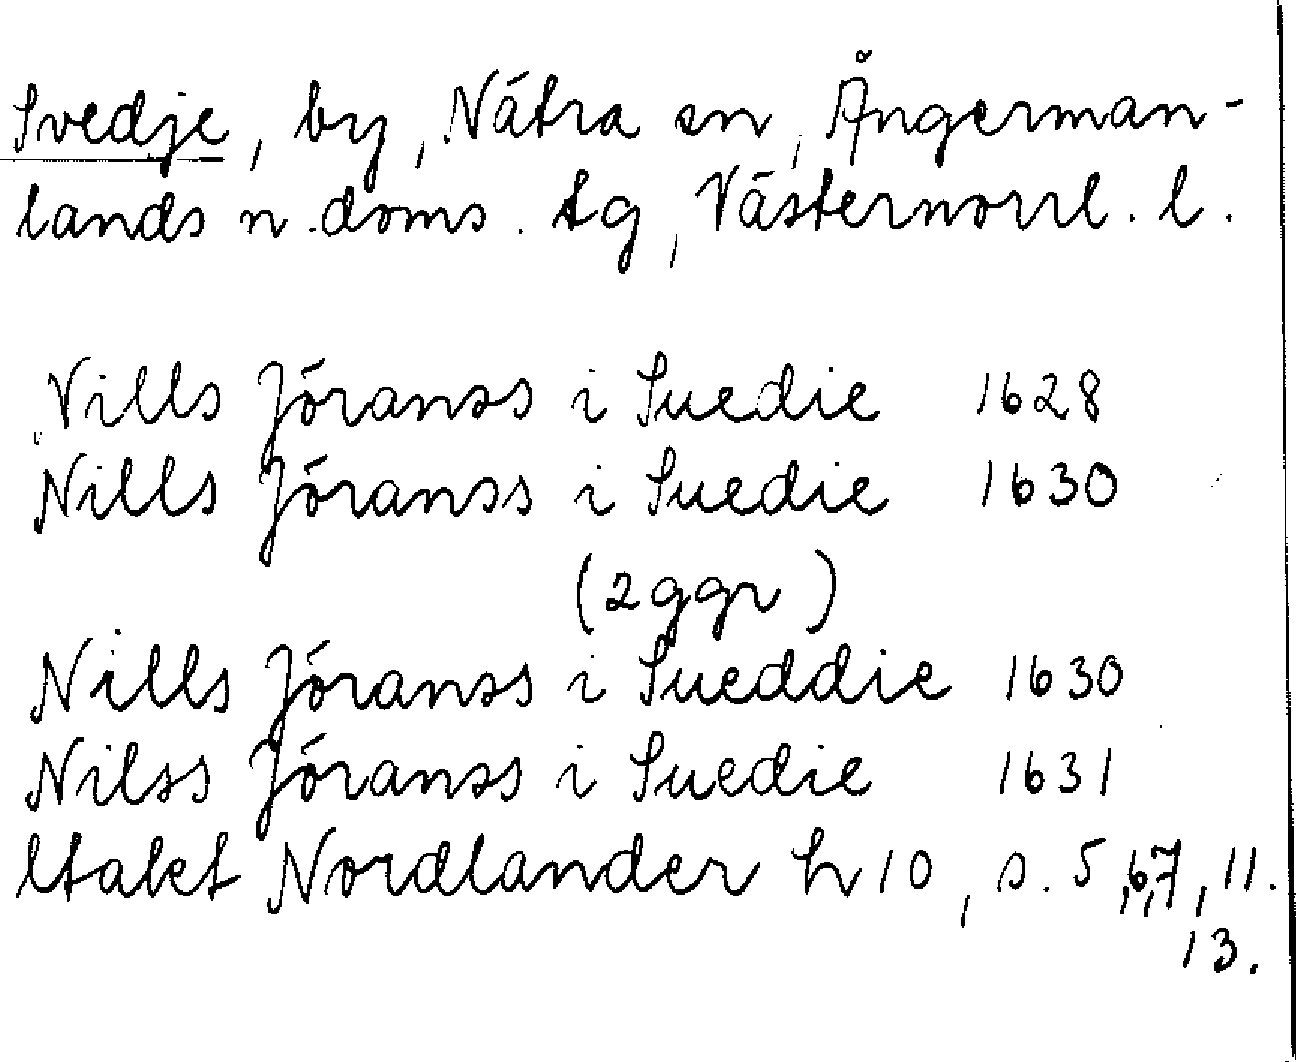 Svedje, by, Nätra sn, Ångerman-
lands n. doms. tg, Västernorrl. l.
Nills Jöranss i Suedie 1628
Nills Jöranss i Suedie 1630
(2 ggr)
Nills Jöranss i Sueddie 1630
Nilss Jöranss i Suedie 1631
Nordlander h 10, s. 5, 6, 7, 11.
13.